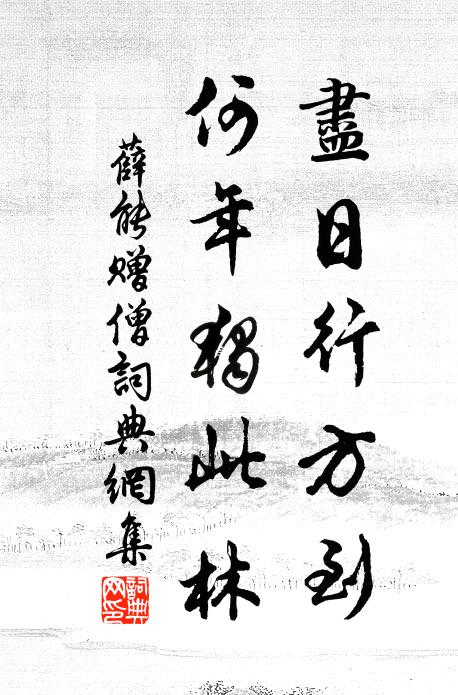 盡日行方到
何年獨此林
薛能贈僧詞典網集
詞典網印